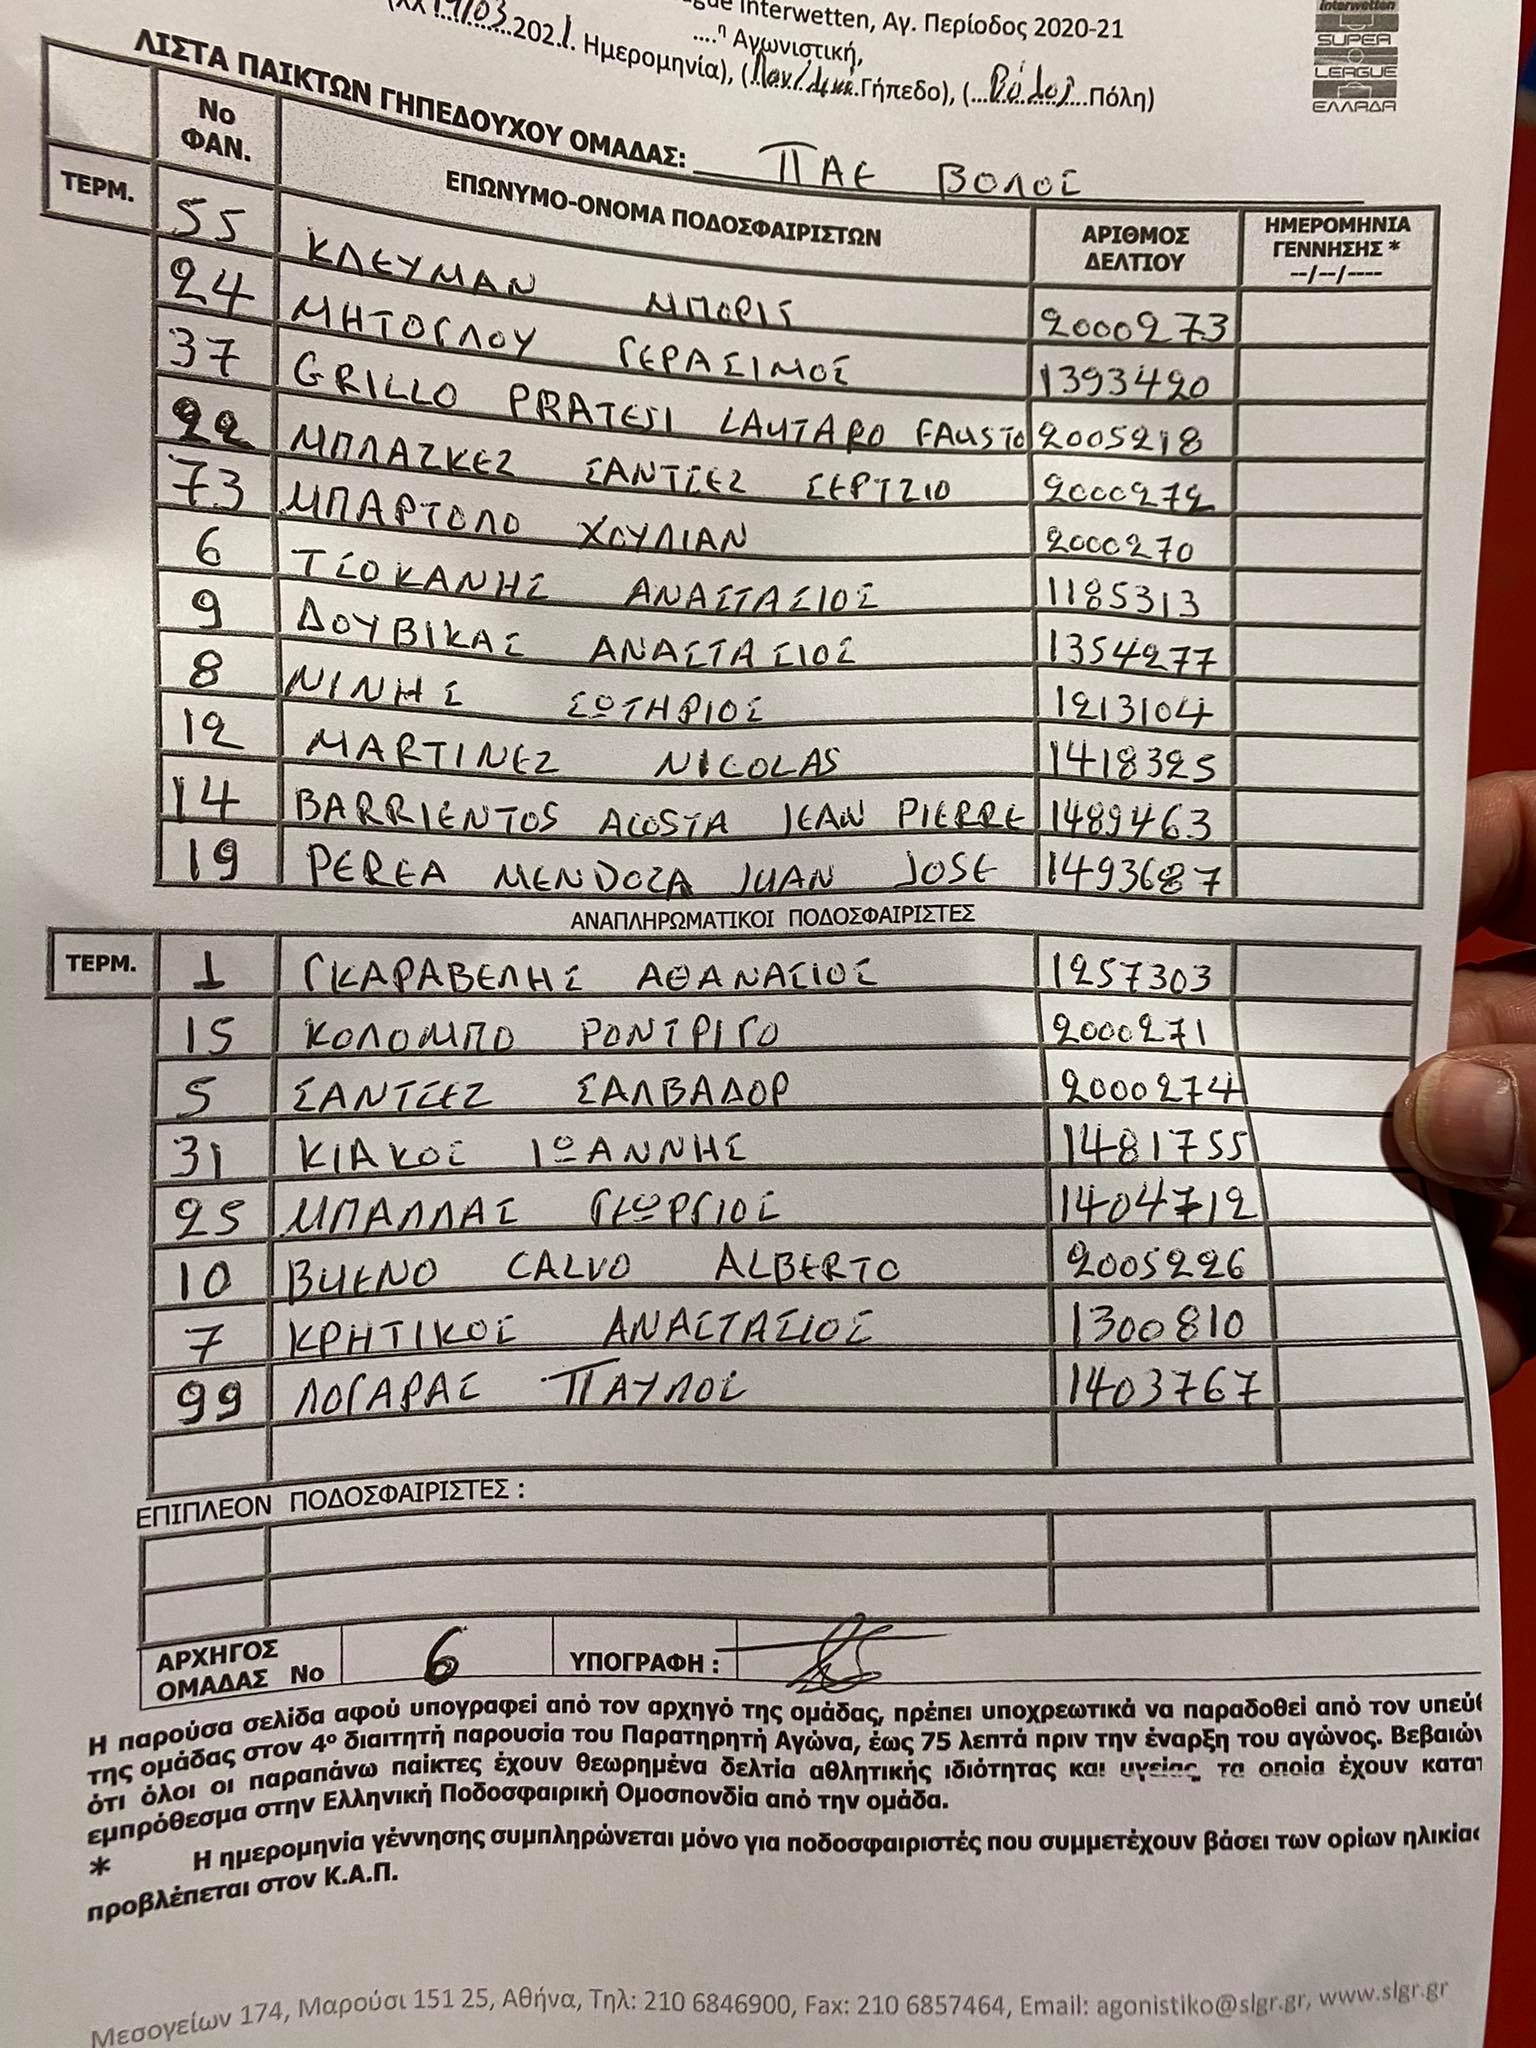 Interwetten, Αγ. Περίοδος 2020-21
....η Αγωνιστική,
/03 2021. Ημερομηνία), ( Γήπεδο), (...Βόλος...Πόλη)
interwetten
SUPER
LEAGUE
ΕΛΛΑΔΑ
ΛΙΣΤΑ ΠΑΙΚΤΩΝ ΓΗΠΕΔΟΥΧΟΥ ΟΜΑΔΑΣ: ΠΑΕ ΒΟΛΟΣ
Νο ΦΑΝ. ΕΠΩΝΥΜΟ-ΟΝΟΜΑ ΠΟΔΟΣΦΑΙΡΙΣΤΩΝ ΑΡΙΘΜΟΣ ΔΕΛΤΙΟΥ ΗΜΕΡΟΜΗΝΙΑ ΓΕΝΝΗΣΗΣ * --/--/----
ΤΕΡΜ. 55 ΚΛΕΥΜΑΝ ΜΠΟΡΙΣ 2000273
24 ΜΗΤΟΓΛΟΥ ΓΕΡΑΣΙΜΟΣ 1393420
37 GRILLO PRATESI LAUTARO FAUSTO 2005218
22 ΜΠΛΑΖΚΕΖ ΣΑΝΤΣΕΖ ΣΕΡΤΖΙΟ 2000272
73 ΜΠΑΡΤΟΛΟ ΧΟΥΛΙΑΝ 2000270
6 ΤΣΟΚΑΝΗΣ ΑΝΑΣΤΑΣΙΟΣ 1185313
9 ΔΟΥΒΙΚΑΣ ΑΝΑΣΤΑΣΙΟΣ 1354277
8 ΝΙΝΗΣ ΣΩΤΗΡΙΟΣ 1213104
12 MARTINEZ NICOLAS 1418325
14 BARRIENTOS ACOSTA JEAN PIERRE 1489463
19 PEREA MENDOZA JUAN JOSE 1493687
ΑΝΑΠΛΗΡΩΜΑΤΙΚΟΙ ΠΟΔΟΣΦΑΙΡΙΣΤΕΣ
ΤΕΡΜ. 1 ΓΚΑΡΑΒΕΛΗΣ ΑΘΑΝΑΣΙΟΣ 1257303
15 ΚΟΛΟΜΠΟ ΡΟΝΤΡΙΓΟ 2000271
5 ΣΑΝΤΣΕΖ ΣΑΛΒΑΔΟΡ 2000274
31 ΚΙΑΚΟΣ ΙΩΑΝΝΗΣ 1481755
25 ΜΠΑΛΛΑΣ ΓΕΩΡΓΙΟΣ 1404712
10 BUENO CALVO ALBERTO 2005226
7 ΚΡΗΤΙΚΟΣ ΑΝΑΣΤΑΣΙΟΣ 1300810
99 ΛΟΓΑΡΑΣ ΠΑΥΛΟΣ 1403767
ΕΠΙΠΛΕΟΝ ΠΟΔΟΣΦΑΙΡΙΣΤΕΣ :
ΑΡΧΗΓΟΣ ΟΜΑΔΑΣ Νο 6 ΥΠΟΓΡΑΦΗ :
Η παρούσα σελίδα αφού υπογραφεί από τον αρχηγό της ομάδας, πρέπει υποχρεωτικά να παραδοθεί από τον υπεύθ
της ομάδας στον 4ο διαιτητή παρουσία του Παρατηρητή Αγώνα, έως 75 λεπτά πριν την έναρξη του αγώνος. Βεβαιών
ότι όλοι οι παραπάνω παίκτες έχουν θεωρημένα δελτία αθλητικής ιδιότητας και υγείας, τα οποία έχουν κατατ
εμπρόθεσμα στην Ελληνική Ποδοσφαιρική Ομοσπονδία από την ομάδα.
* Η ημερομηνία γέννησης συμπληρώνεται μόνο για ποδοσφαιριστές που συμμετέχουν βάσει των ορίων ηλικίας
προβλέπεται στον Κ.Α.Π.
Μεσογείων 174, Μαρούσι 151 25, Αθήνα, Τηλ: 210 6846900, Fax: 210 6857464, Email: agonistiko@slgr.gr, www.slgr.gr